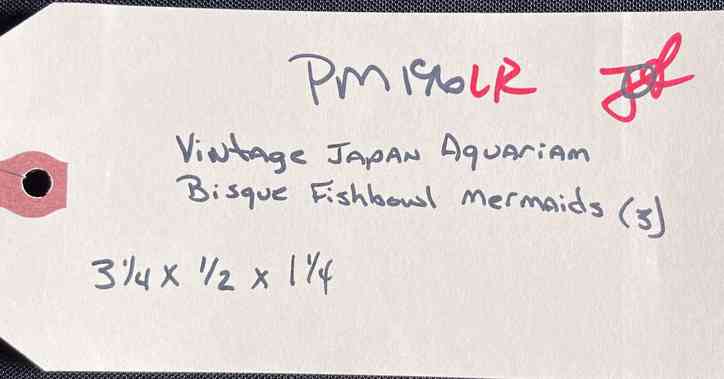 PM196LR
Vintage Japan Aquariam
Bisque Fishbowl Mermaids (3)
3 1/4 x 1/2 x 1 1/4